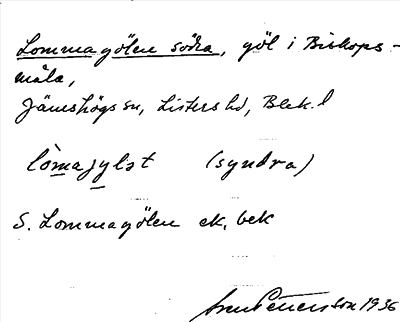 Lommagölen södra, göl i Biskops-
måla,
Jämshögs sn, Listers hd, Blek. l
lòmajylət (syndra)
S. Lommagölen ek, bek
Petersson 1936